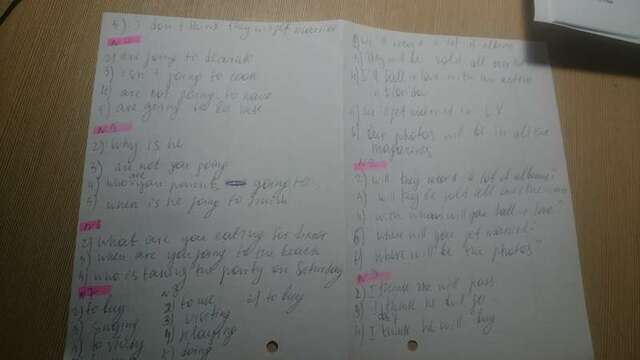 5) i don't think they will get married
2) are going to decorate
3) isn't going to cook
4) are not going to have
5) are going to be
2) why is he
3) are not you going
4) who are you parents going to
5) when is he going to finish
2) what are you eating for dinner
3) when are you going to the beach
4) who is taking the party on Saturday
2) to buy
3) singing
4) to study
2) to use
3) visiting
4) playing
5) doing
2) to buy
a lot of albums
3) they will be sold all over
4) I'll fall in love with an actor
in London
5) we'll get married in LV
6) Our photos will be in all the
magazines
2) will they record a lot of albums?
3) will they be sold all over the
4) with whom will you fall in love?
5) where will you get married?
6) where will be the photos?
2) I think she will pass
3) I think he go
don't
4) I think he will buy